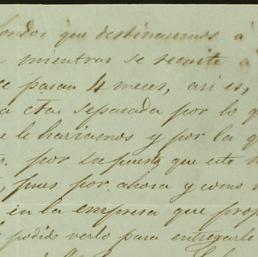 fondos que destinaremos á
mientras se remite á
se pasan 4 meses, así es,
a cta. separada por lo q
e le hariamos y por la q
por supuesto que esto
pues por ahora y como
en la empresa que prop
podido verlo para entregarle